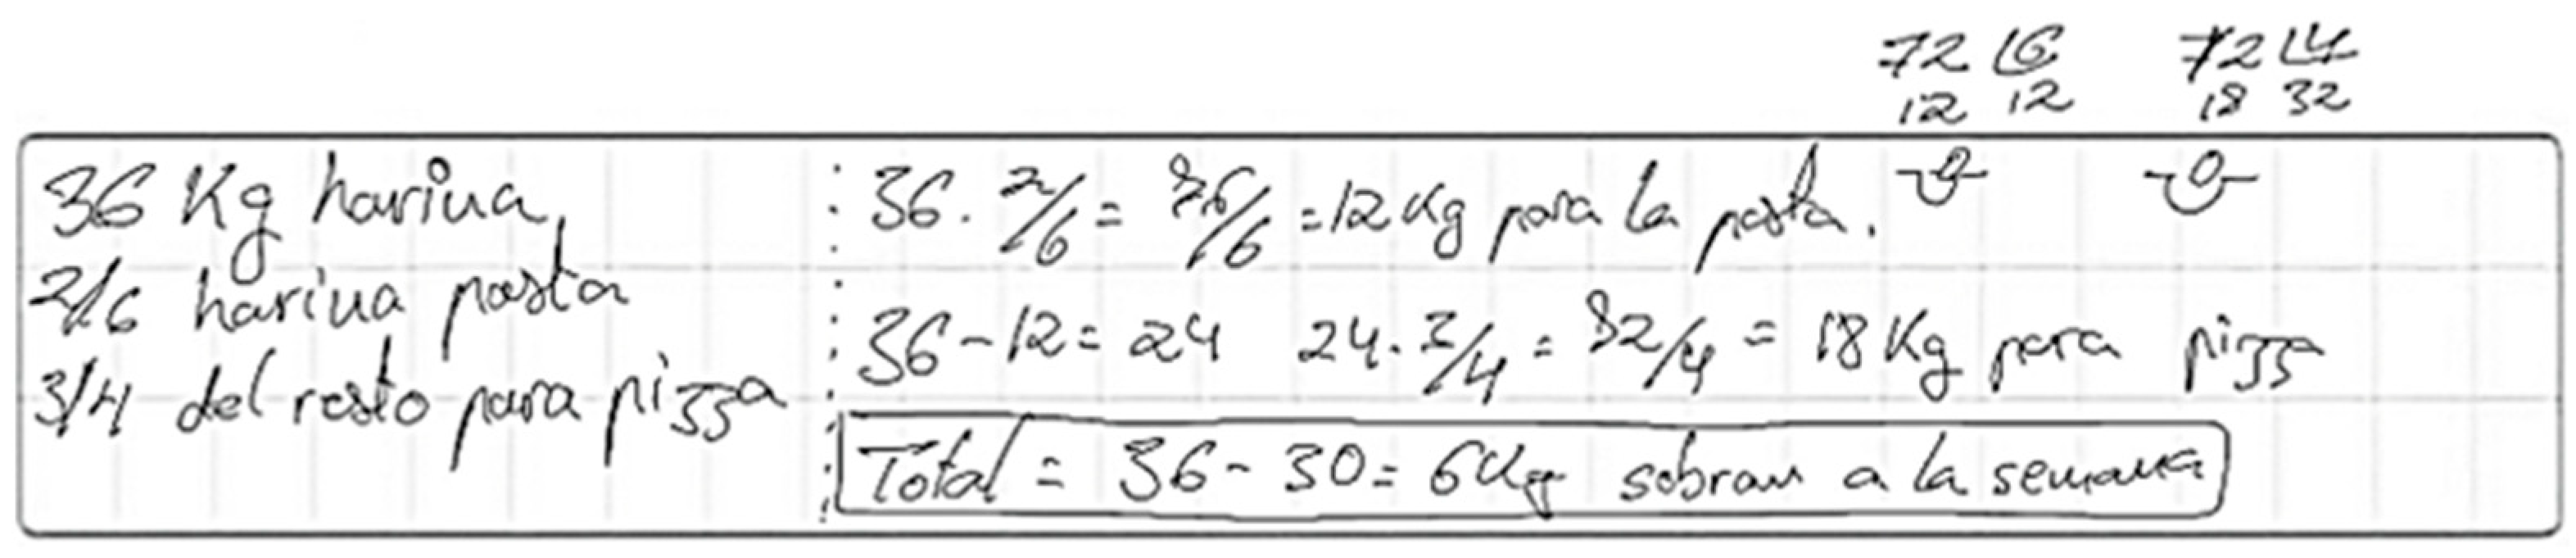 72 6 72 4
12 12 18 32
0 0
36 Kg harina
2/6 harina pasta
3/4 del resto para pizza
36 · 2/6 = 76/6 = 12 Kg para la pasta.
36 - 12 = 24 24 · 3/4 = 82/4 = 18 Kg para pizza
Total = 36 - 30 = 6 Kg sobran a la semana